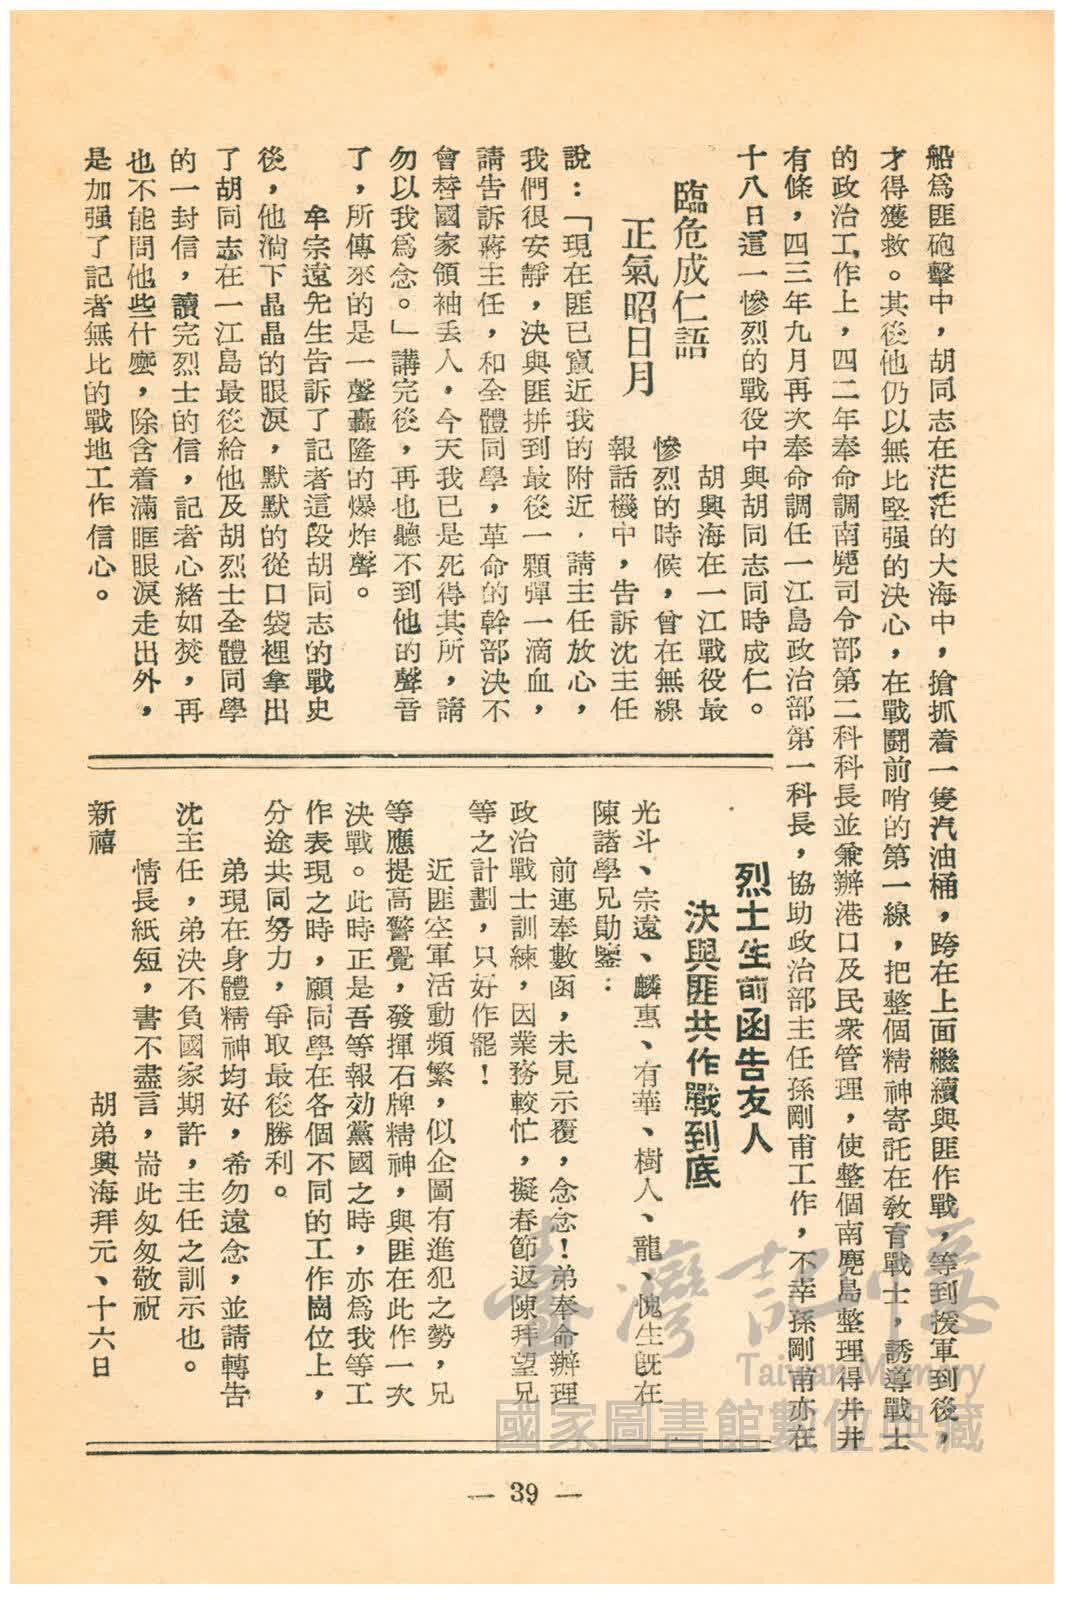 船爲匪砲擊中，胡同志在茫茫的大海中，搶抓着一隻汽油桶，跨在上面繼續與匪作戰，等到援軍到後，
才得獲救。其後他仍以無比堅强的決心，在戰鬪前哨的第一線，把整個精神寄託在教育戰士，誘導戰士
的政治工作上，四二年奉命調南麂司令部第二科科長並兼辦港口及民衆管理，使整個南麂島整理得井井
有條，四三年九月再次奉命調任一江島政治部第一科長，協助政治部主任孫剛甫工作，不幸孫剛甫亦在
十八日這一慘烈的戰役中與胡同志同時成仁。
臨危成仁語
正氣昭日月
胡興海在一江戰役最
慘烈的時候，曾在無線
報話機中，告訴沈主任
說：「現在匪已竄近我的附近，請主任放心，
我們很安靜，決與匪拼到最後一顆彈一滴血，
請告訴蔣主任，和全體同學，革命的幹部決不
會替國家領袖丢人，今天我已是死得其所，請
勿以我爲念。」講完後，再也聽不到他的聲音
了，所傳來的是一聲轟隆的爆炸聲。
牟宗遠先生告訴了記者這段胡同志的戰史
後，他淌下晶晶的眼淚，默默的從口袋裡拿出
了胡同志在一江島最後給他及胡烈士全體同學
的一封信，讀完烈士的信，記者心緒如焚，再
也不能問他些什麼，除含着滿眶眼淚走出外，
是加强了記者無比的戰地工作信心。
烈士生前函告友人
決與匪共作戰到底
光斗、宗遠、麟惠、有華、樹人、龍、愧生旣在
陳諸學兄勛鑒：
前連奉數函，未見示覆，念念！弟奉命辦理
政治戰士訓練，因業務較忙，擬春節返陳拜望兄
等之計劃，只好作罷！
近匪空軍活動頻繁，似企圖有進犯之勢，兄
等應提高警覺，發揮石牌精神，與匪在此作一次
決戰。此時正是吾等報効黨國之時，亦爲我等工
作表現之時，願同學在各個不同的工作崗位上，
分途共同努力，爭取最後勝利。
弟現在身體精神均好，希勿遠念，並請轉告
沈主任，弟決不負國家期許，主任之訓示也。
情長紙短，書不盡言，耑此匆匆敬祝
新禧
胡弟興海拜元、十六日
— 39 —
臺灣記憶
Taiwan Memory
國家圖書館數位典藏